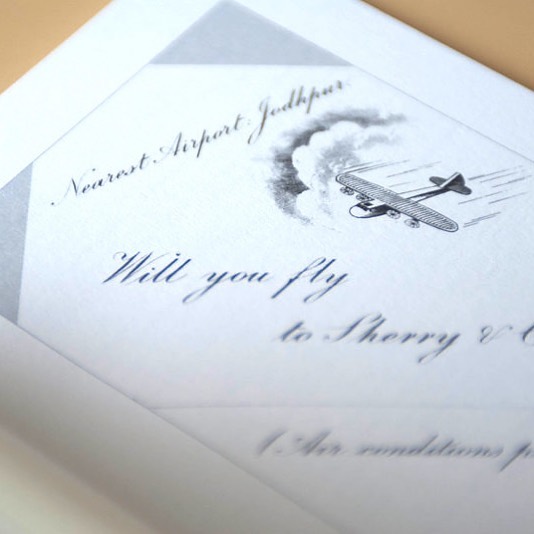 Nearest Airport: Jodhpur
Will you fly
to Sherry &
(Air conditions